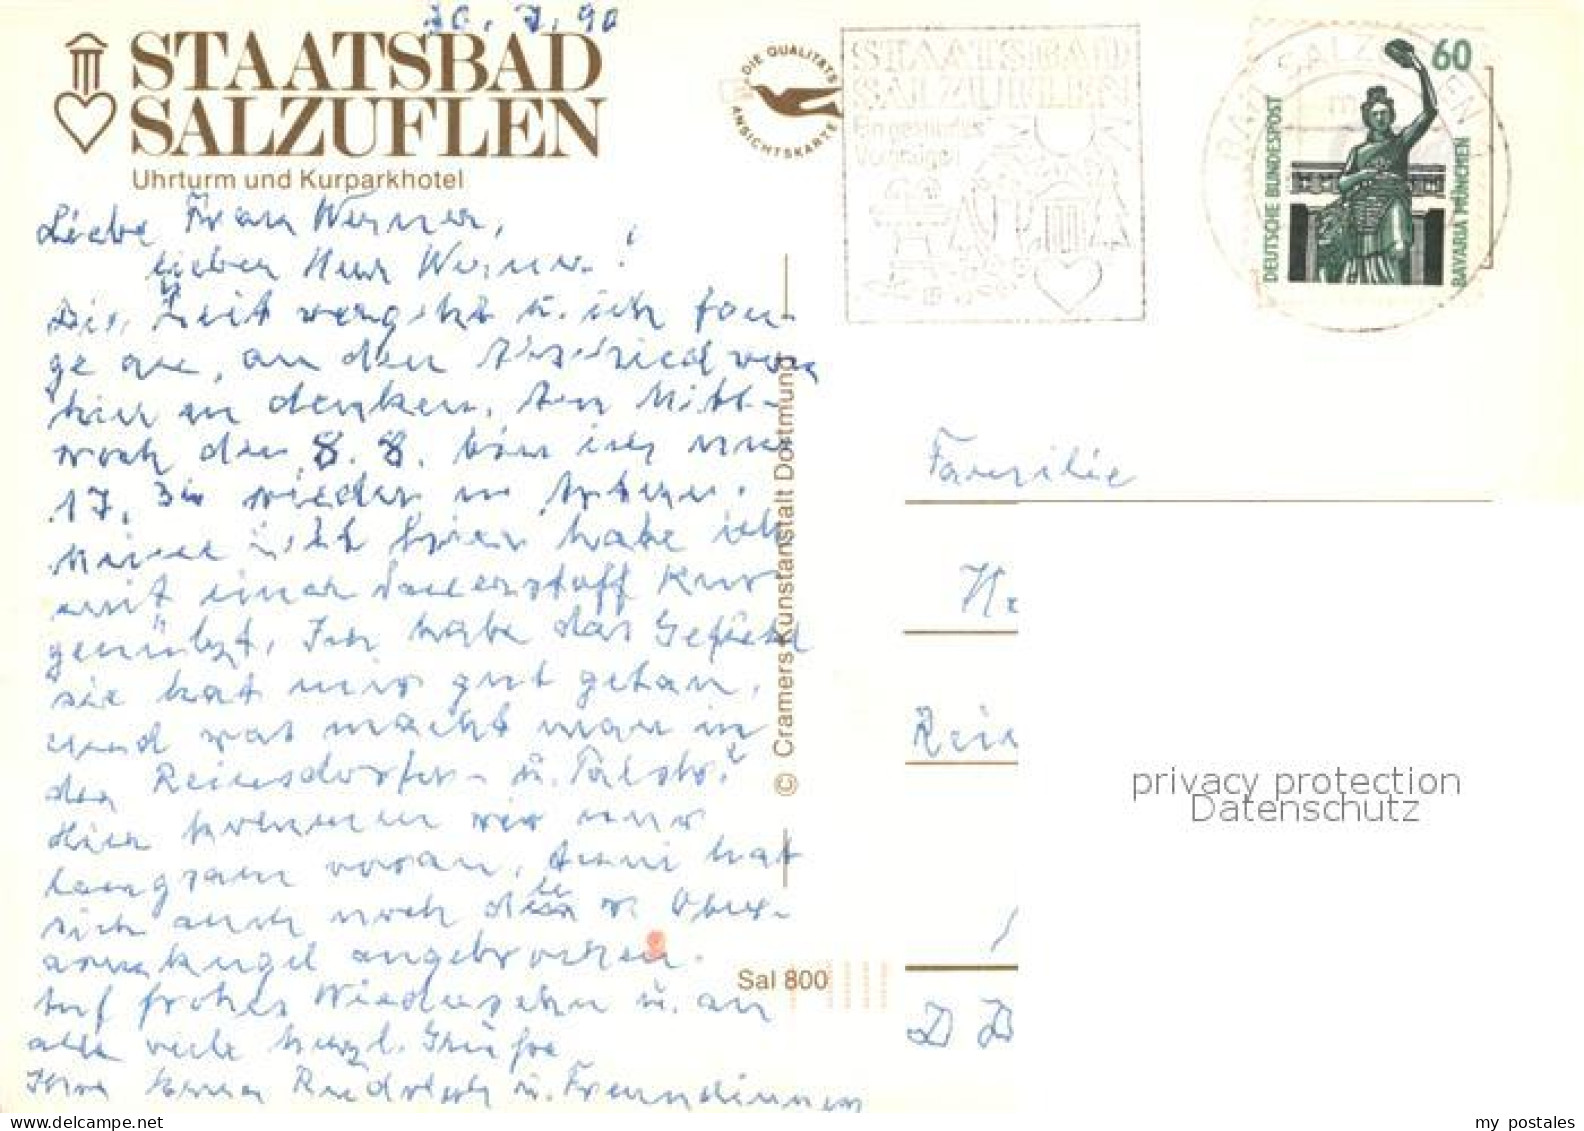 30. 7. 90
STAATSBAD
SALZUFLEN
Uhrturm und Kurparkhotel
DIE QUALITÄTS
ANSICHTSKARTE
STAATSBAD
SALZUFLEN
Ein gesundes
Vergnügen
BAD SALZUFLEN
60
DEUTSCHE BUNDESPOST
BAVARIA MÜNCHEN
Liebe Frau Werner,
lieber Herr Werner!
Die Zeit vergeht u. ich fan-
ge an, an den Abschied von
hier zu denken. Am Mitt-
woch den 8. 8. bin ich um
17, wieder in
Meine Zeit hier habe ich
mit einer Sauerstoff Kur
genützt. Ich habe das Gefühl
sie hat mir gut getan,
und was macht man in
der Reinsdorfer- u. Talstr.?
Hier kommen wir nur
langsam voran, Anni hat
sich auch noch die r. Ober-
armkugel angebrochen.
Auf frohes Wiedersehn u. an
alle viele herzl. Grüße
Ihre Rudolph u. Freundinnen
© Cramers Kunstanstalt Dortmund
Sal 800
Familie
Rein
D
privacy protection
Datenschutz
my postales